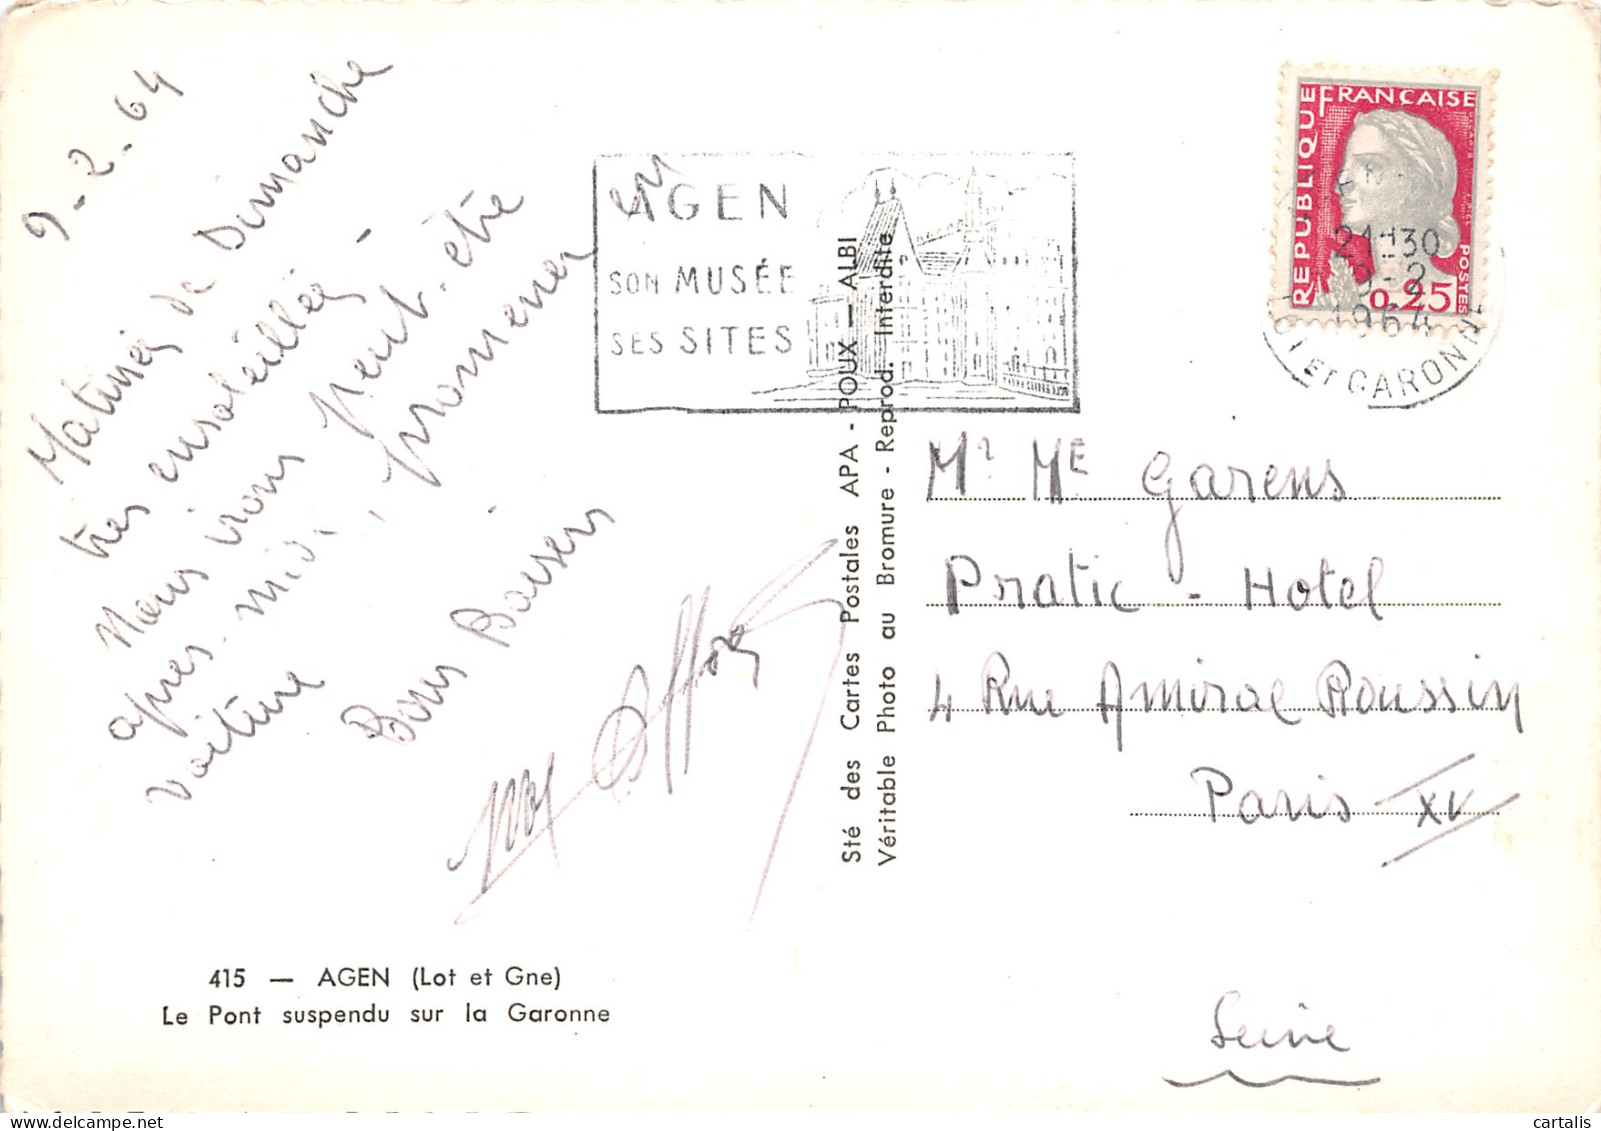 9-2-64
Matinée de Dimanche
très ensoleillée -
Nous irons peut-être
après-midi, promener en
voiture
Bons Baisers
415 — AGEN (Lot et Gne)
Le Pont suspendu sur la Garonne
AGEN
SON MUSÉE
SES SITES
Sté des Cartes Postales APA - POUX — ALBI
Véritable Photo au Bromure - Reprod. Interdite
RÉPUBLIQUE FRANÇAISE
POSTES
0,25
21H30
9-2
1964
LOT ET GARONNE
Mr ME Garens
Pratic - Hotel
4 Rue Amiral Roussin
Paris XV
Seine
cartalis
www.delcampe.net